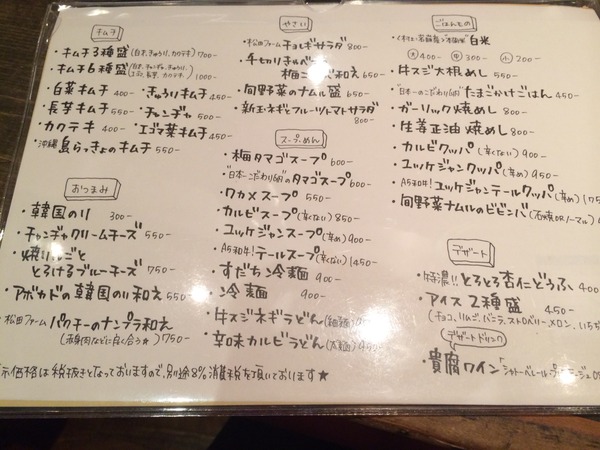 キムチ
・キムチ3種盛(白才、きゅうり、カクテキ)700-
・キムチ6種盛 1000-
・白菜キムチ 400- ・きゅうりキムチ 450-
・長芋キムチ 550- ・チャンヂャ 500-
・カクテキ 400- ・エゴマ葉キムチ 450-
・沖縄 島らっきょのキムチ 550-
おつまみ
・韓国のり 300-
・チャンヂャクリームチーズ 550-
・焼りんごと
とろけるブルーチーズ 750-
・アボカドの韓国のり和え 550-
・松田ファーム パクチーのナンプラ和え
(赤身肉などに良く合う★) 750-
やさい
・松田ファーム チョレギサラダ 800-
・千切りきゃべつ
梅ニンニク和え 650-
・旬野菜のナムル盛 650-
・新玉ネギとフルーツトマトサラダ
800-
スープ・めん
・梅タマゴスープ 600-
・"日本一こだわり卵"のタマゴスープ 600-
・ワカメスープ 550-
・カルビスープ(辛くない) 850-
・ユッケジャンスープ(辛め) 900-
・A5和牛!テールスープ(辛くない) 1450-
・すだち冷麺 900-
・冷麺 900-
・牛スジネギうどん(細麺)
・辛味カルビうどん(太麺)
ごはんもの
白米
大400- 中300- 小200-
・牛スジ大根めし 550-
・"日本一のこだわり卵"たまごかけごはん 450-
・ガーリック焼めし 800-
・生姜正油焼めし 800-
・カルビクッパ(辛くない) 900-
・ユッケジャンクッパ(辛め) 950-
・A5和牛!ユッケジャンテールクッパ(辛め)
・旬野菜ナムルのビビンバ(石焼ORノーマル)
デザート
・特濃!!とろとろ杏仁どうふ 400
・アイス2種盛 450-
(チョコ、リンゴ、バニラ、ストロベリー、メロン、いちぢ
デザートドリンク
・貴腐ワイン
示価格は税抜きとなっておりますので、別途8%消費税を頂いております★